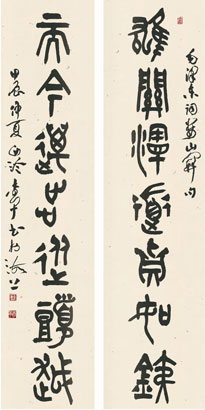 毛澤東詞婁山關句
雄關漫道真如鐵
而今邁步從頭越
甲辰仲夏西泠